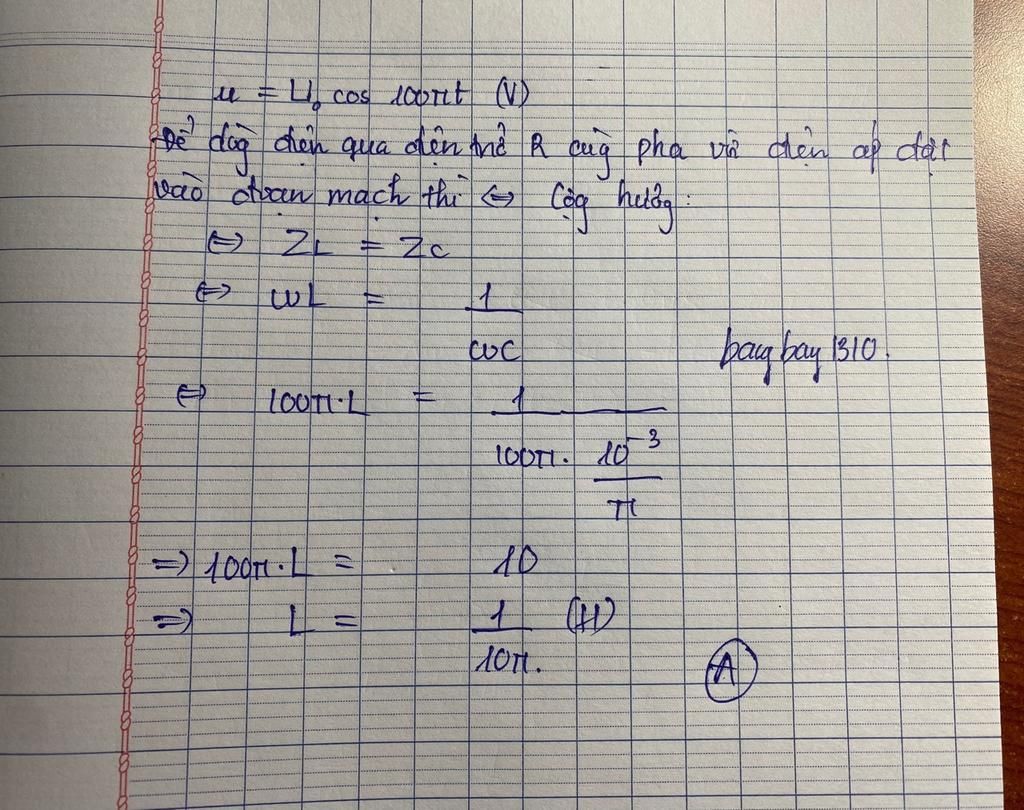 u = U₀ cos 100πt (V)
Để dòg điện qua điện trở R cùg pha với điện áp đặt
vào đoạn mạch thì ⇔ Cộg hưởg:
⇔ ZL = ZC
⇔ ωL = 1/ωC
bay bay 1310.
⇔ 100π.L = 1/(100π. 10⁻³/π)
⇒ 100π.L = 10
⇒ L = 1/10π. (H)
A